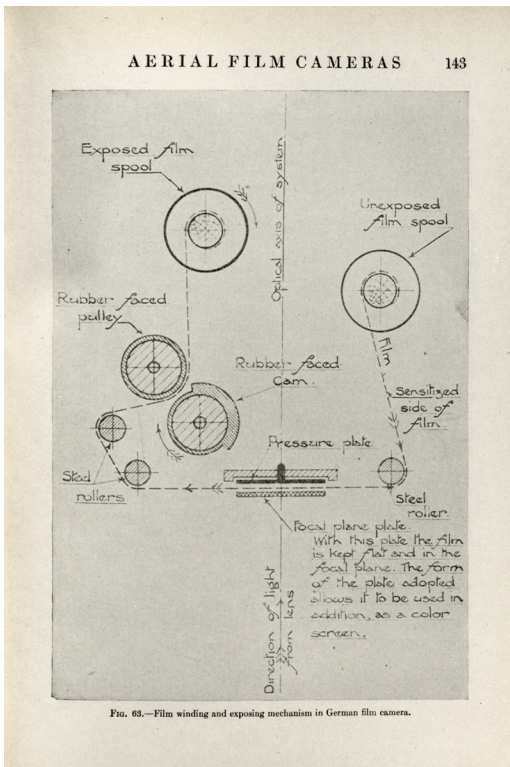 AERIAL FILM CAMERAS 143
Exposed film
spool
Optical axis of system
Unexposed
film spool
Rubber faced
pulley
Film
Rubber faced
Cam.
Sensitized
side of
film.
Pressure plate
Steel
rollers
Steel
roller.
Focal plane plate.
With this plate the film
is kept flat and in the
focal plane. The form
of the plate adopted
allows it to be used in
addition, as a color
screen.
Direction of light
from lens
FIG. 63.—Film winding and exposing mechanism in German film camera.